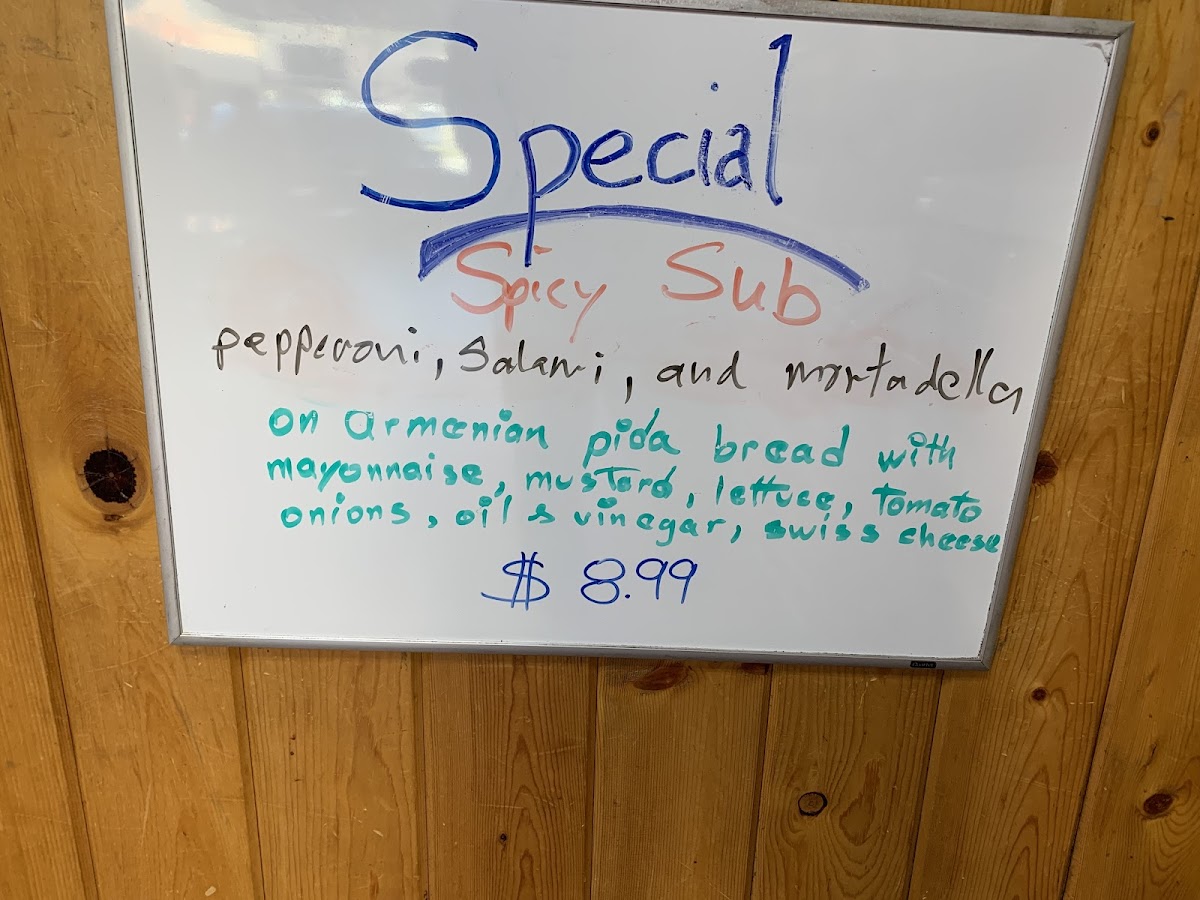 Special
Spicy Sub
pepperoni, salami, and mortadella
on armenian pida bread with
mayonnaise, mustard, lettuce, tomato
onions, oil & vinegar, swiss cheese
$ 8.99